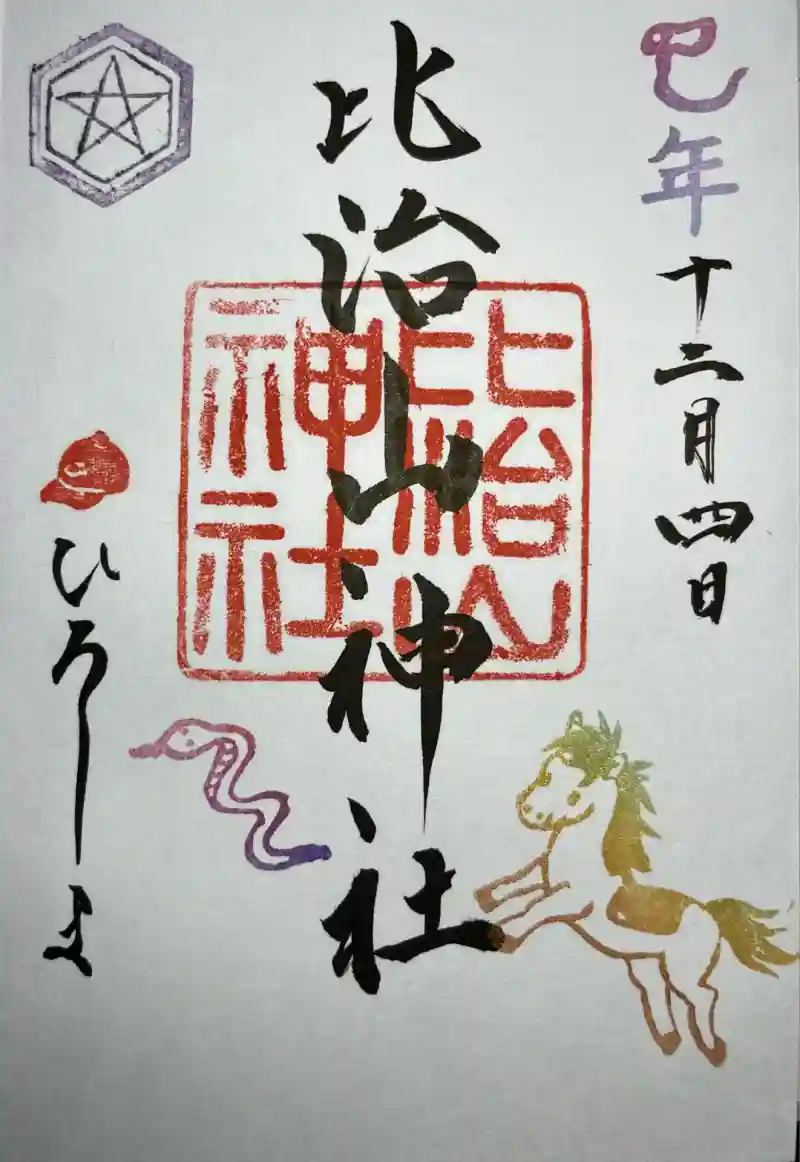 巳年十二月四日
比治山神社
比治山
神社
ひろしま